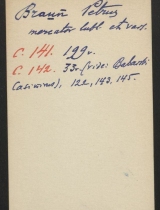 Braun Petrus
mercator lubl. et var.
C. 141. 199v.
C. 142. 33r (vide: Babecki
Casimirus), 122, 143, 145.